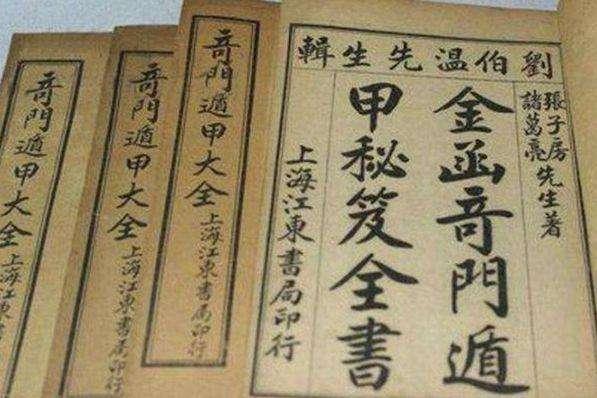 劉伯温先生輯
張子房
諸葛亮
先生著
金函竒門遁
甲秘笈全書
上海江東書局印行
竒門遁甲大全
上海江東書局印行
竒門遁甲大全
上海江東書局印行
竒門遁甲大全
上海江